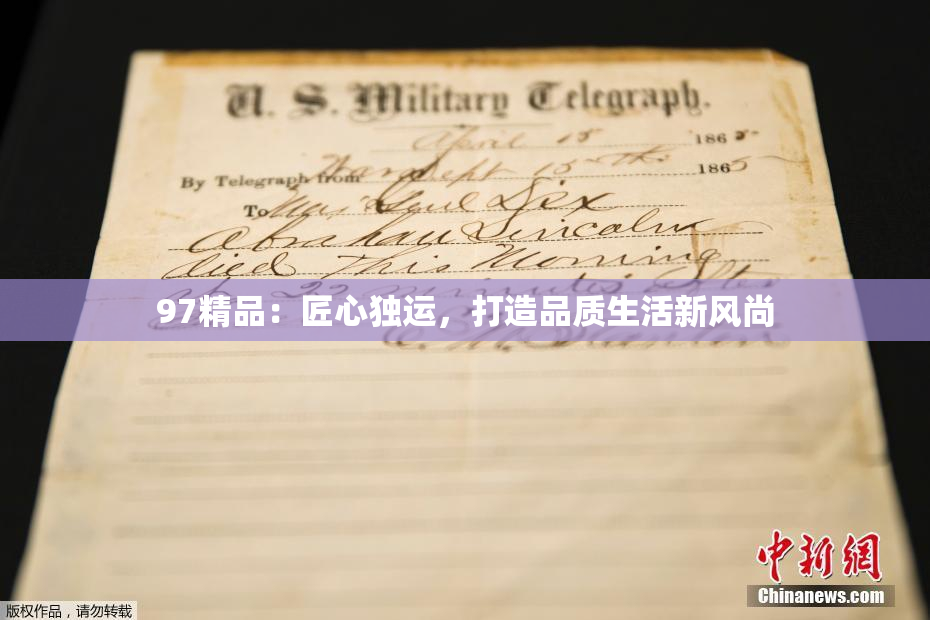 U. S. Military Telegraph.
April 15 1865
By Telegraph from War Dept 15th 1865
To Maj Genl Dix
Abraham Lincoln
died This Morning
at 22 minutes after
97精品：匠心独运，打造品质生活新风尚
E. M. Stanton
中新网
Chinanews.com
版权作品，请勿转载